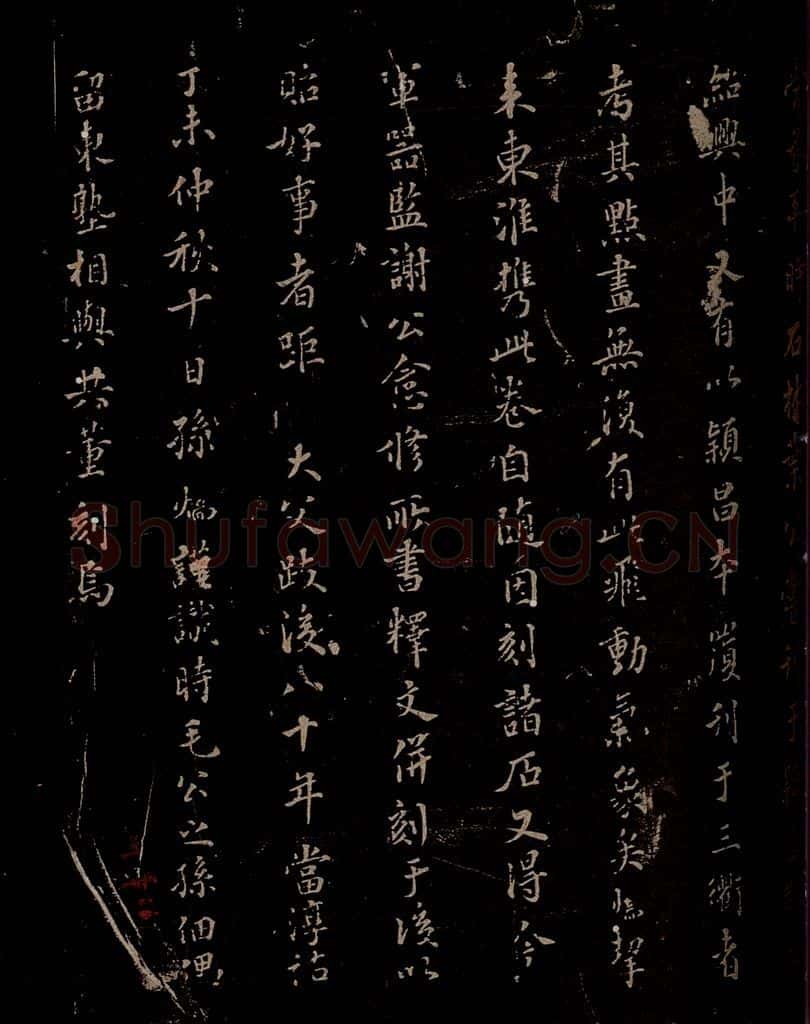 紹興中又有以潁昌本嵗刊于三衢者
考其點畫無復有此飛動氣象矣熺挈
来東淮携此卷自随因刻諸石又得今
軍器監謝公念修所書釋文併刻于後以
貽好事者距 大父跋後八十年當淳祐
丁未仲秋十日孫熺謹識時毛公之孫佃
留東塾相與共董刻焉
Shufawang.CN